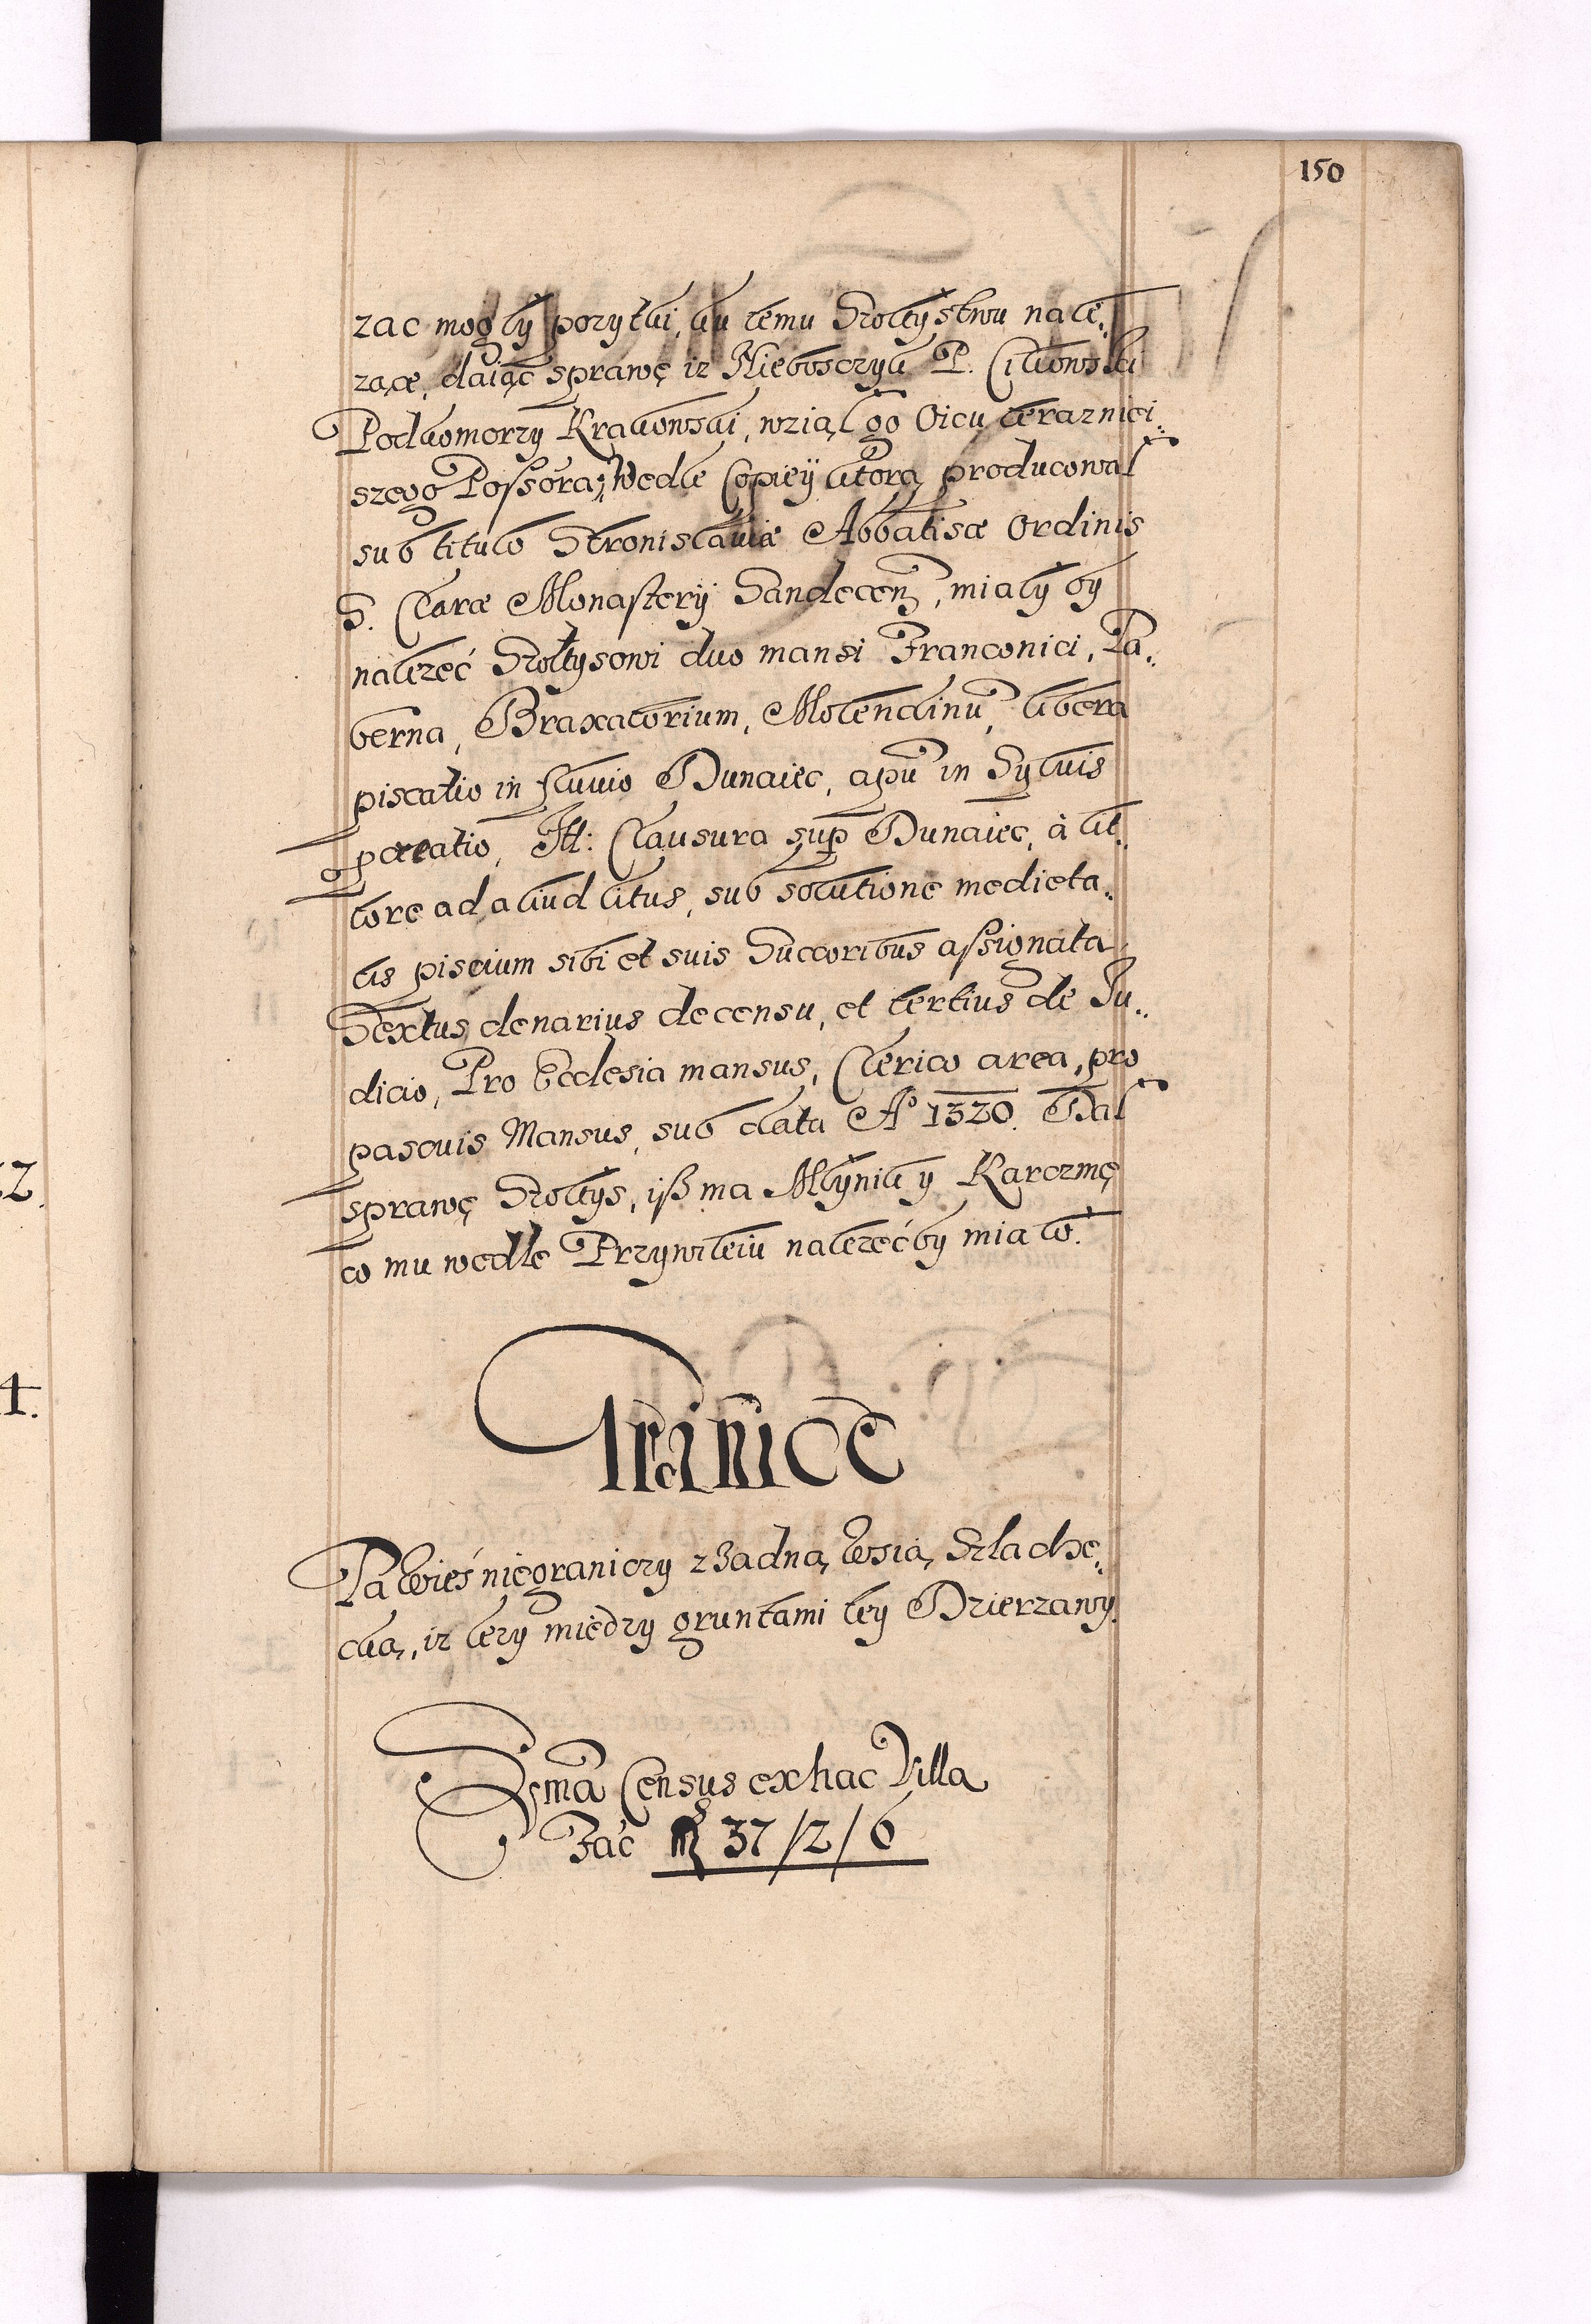 150
zac mogły pozytki, ku temu Szołtystwu nale„
zące, daiąc sprawę iz Nieboszczyk P. Cikowski
Podkomorzy Krakowski, wziął go Oicu terazniei„
szego Possora, Wedle Copiey ktorą producował
sub titulo Stronislaviæ Abbatisæ Ordinis
S. Claræ Monasterij Sandecen, miały by
należeć Szołtysowi duo mansi Franconici, Ta„
berna, Braxatorium, Molendinū, libera
piscatio in fluvio Dunaiec, apū in Sylvis
Itt: Clausura sup Dunaiec, à lit„
tore ad aliud litus, sub solutione medieta„
tis piscium sibi et suis Succoribus assignata
Sextus denarius de censu, et tertius de Ju„
dicio, Pro Ecclesia mansus, Clerico area, pro
pascuis Mansus, sub data Aº 1320. Dał
sprawę Szołtys, iß ma Młynik y Karczmę
co mu wedle Przywileiu należeć by miało.
Granice
Ta Wieś nie graniczy z Żadną Wsią Szlache„
cką, iz leży miedzy gruntami tey Dzierzawy.
Sma Census ex hac Villa
Fac 37/2/6